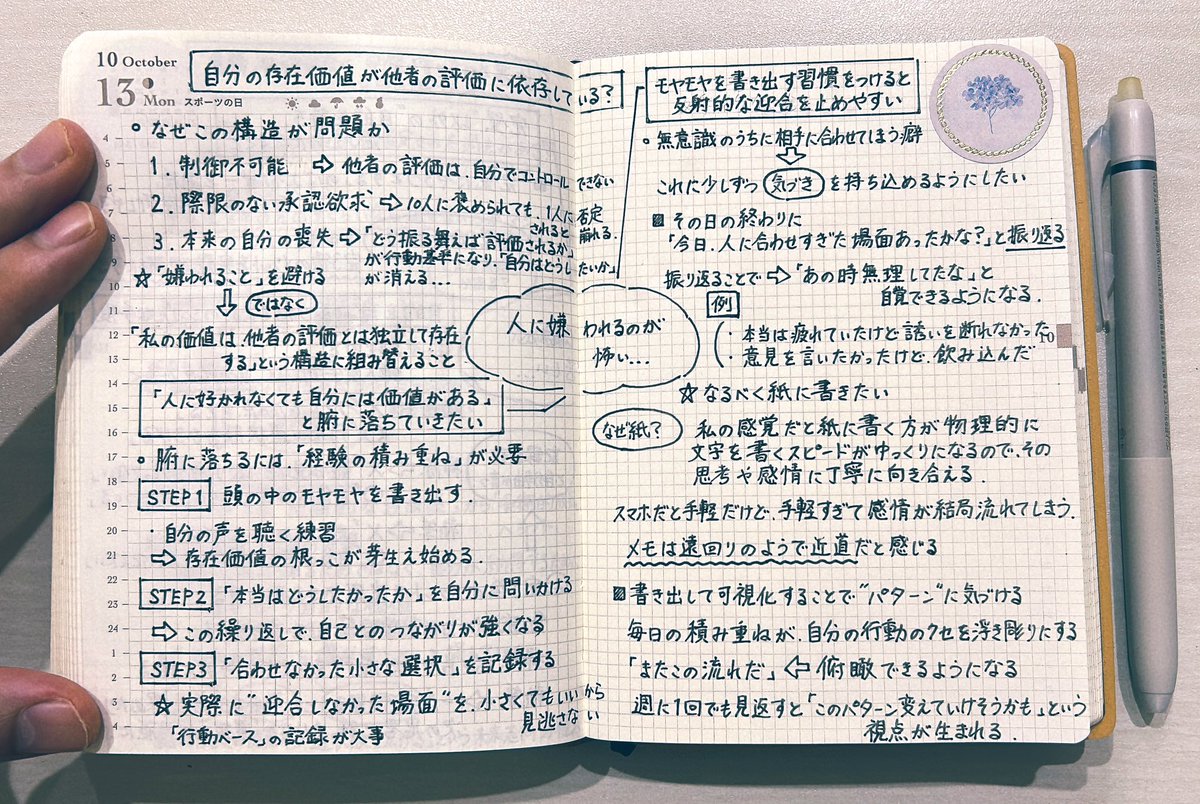 10 October
13 Mon スポーツの日
自分の存在価値が他者の評価に依存している?
○ なぜこの構造が問題か
1. 制御不可能 ⇨ 他者の評価は、自分でコントロールできない
2. 際限のない承認欲求 ⇨ 10人に褒められても、1人に否定されると崩れる.
3. 本来の自分の喪失 ⇨「どう振る舞えば評価されるか」
が行動基準になり、「自分はどうしたいか」
が消える…
☆「嫌われること」を避ける
⇩ ではなく
「私の価値は、他者の評価とは独立して存在
する」という構造に組み替えること
「人に好かれなくても自分には価値がある」
と腑に落ちていきたい
○ 腑に落ちるには、「経験の積み重ね」が必要
STEP1 頭の中のモヤモヤを書き出す.
・自分の声を聴く練習
⇨ 存在価値の根っこが芽生え始める.
STEP2 「本当はどうしたかったか」を自分に問いかける
⇨ この繰り返しで、自己とのつながりが強くなる
STEP3 「合わせなかった小さな選択」を記録する
☆ 実際に“迎合しなかった場面”を、小さくてもいいから
見逃さない
「行動ベース」の記録が大事
4
5
6
7
8
9
10
11
12
13
14
15
16
17
18
19
20
21
22
23
24
1
2
3
4
人に嫌われるのが
怖い…
モヤモヤを書き出す習慣をつけると
反射的な迎合を止めやすい
○ 無意識のうちに相手に合わせてしまう癖
⇩
これに少しずつ 気づき を持ち込めるようにしたい
▨ その日の終わりに
「今日、人に合わせすぎた場面あったかな?」と振り返る
振り返ることで ⇨「あの時無理してたな」と
自覚できるようになる.
例
・本当は疲れていたけど誘いを断れなかった
・意見を言いたかったけど、飲み込んだ
10
☆ なるべく紙に書きたい
なぜ紙? 私の感覚だと紙に書く方が物理的に
文字を書くスピードがゆっくりになるので、その
思考や感情に丁寧に向き合える.
スマホだと手軽だけど、手軽すぎて感情が結局流れてしまう.
メモは遠回りのようで近道だと感じる
▨ 書き出して可視化することで“パターン”に気づける
毎日の積み重ねが、自分の行動のクセを浮き彫りにする
「またこの流れだ」⇦ 俯瞰できるようになる
週に1回でも見返すと「このパターン変えていけそうかも」という
視点が生まれる.